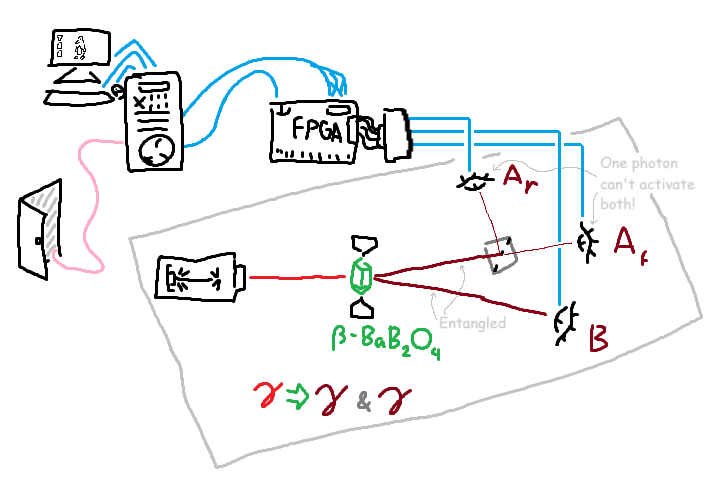 FPGA
Ar
One photon
can't activate
both!
At
Entangled
B
β-BaB₂O₄
γ ⇒ γ & γ